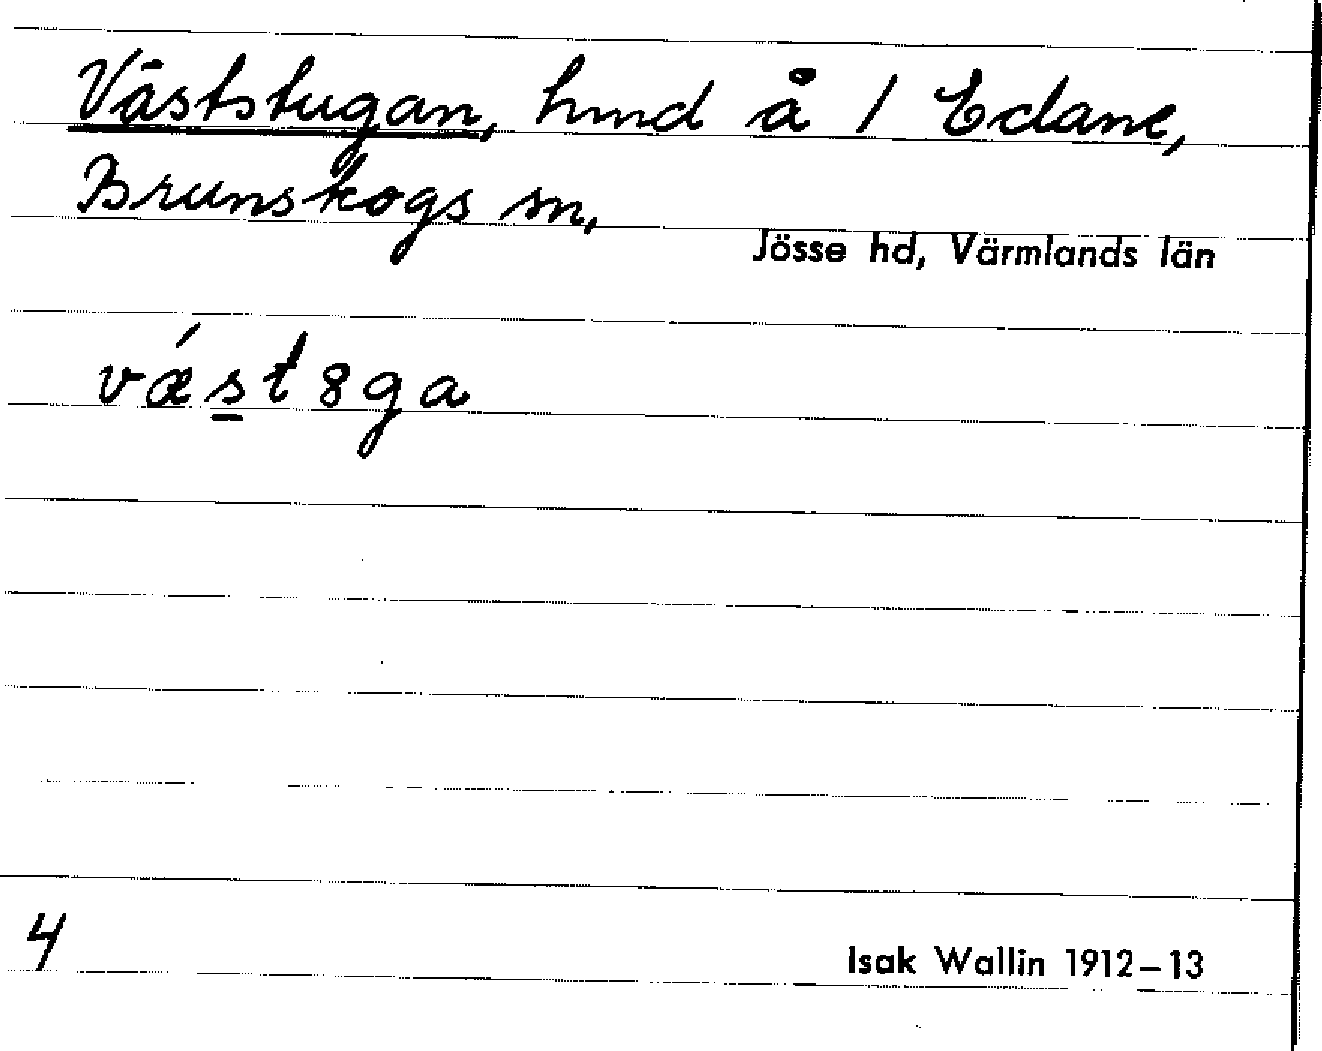 Väststugan, hmd å 1 Edane,
Brunskogs sn,
Jösse hd, Värmlands län
vǽst8ga
4
Isak Wallin 1912–13